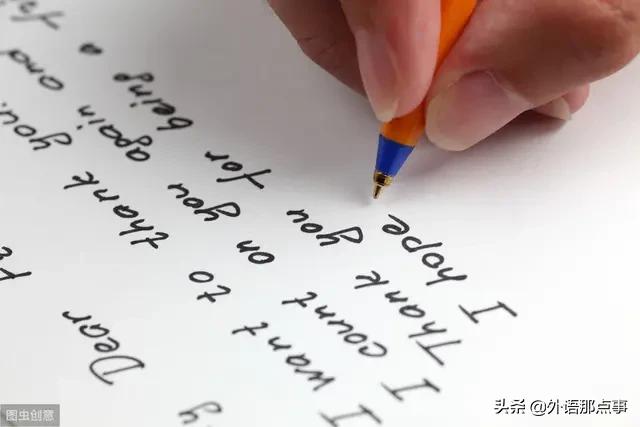 Dear
I want to thank you.
I count on you again and
Thank you for being a
I hope
图虫创意
头条 @外语那点事